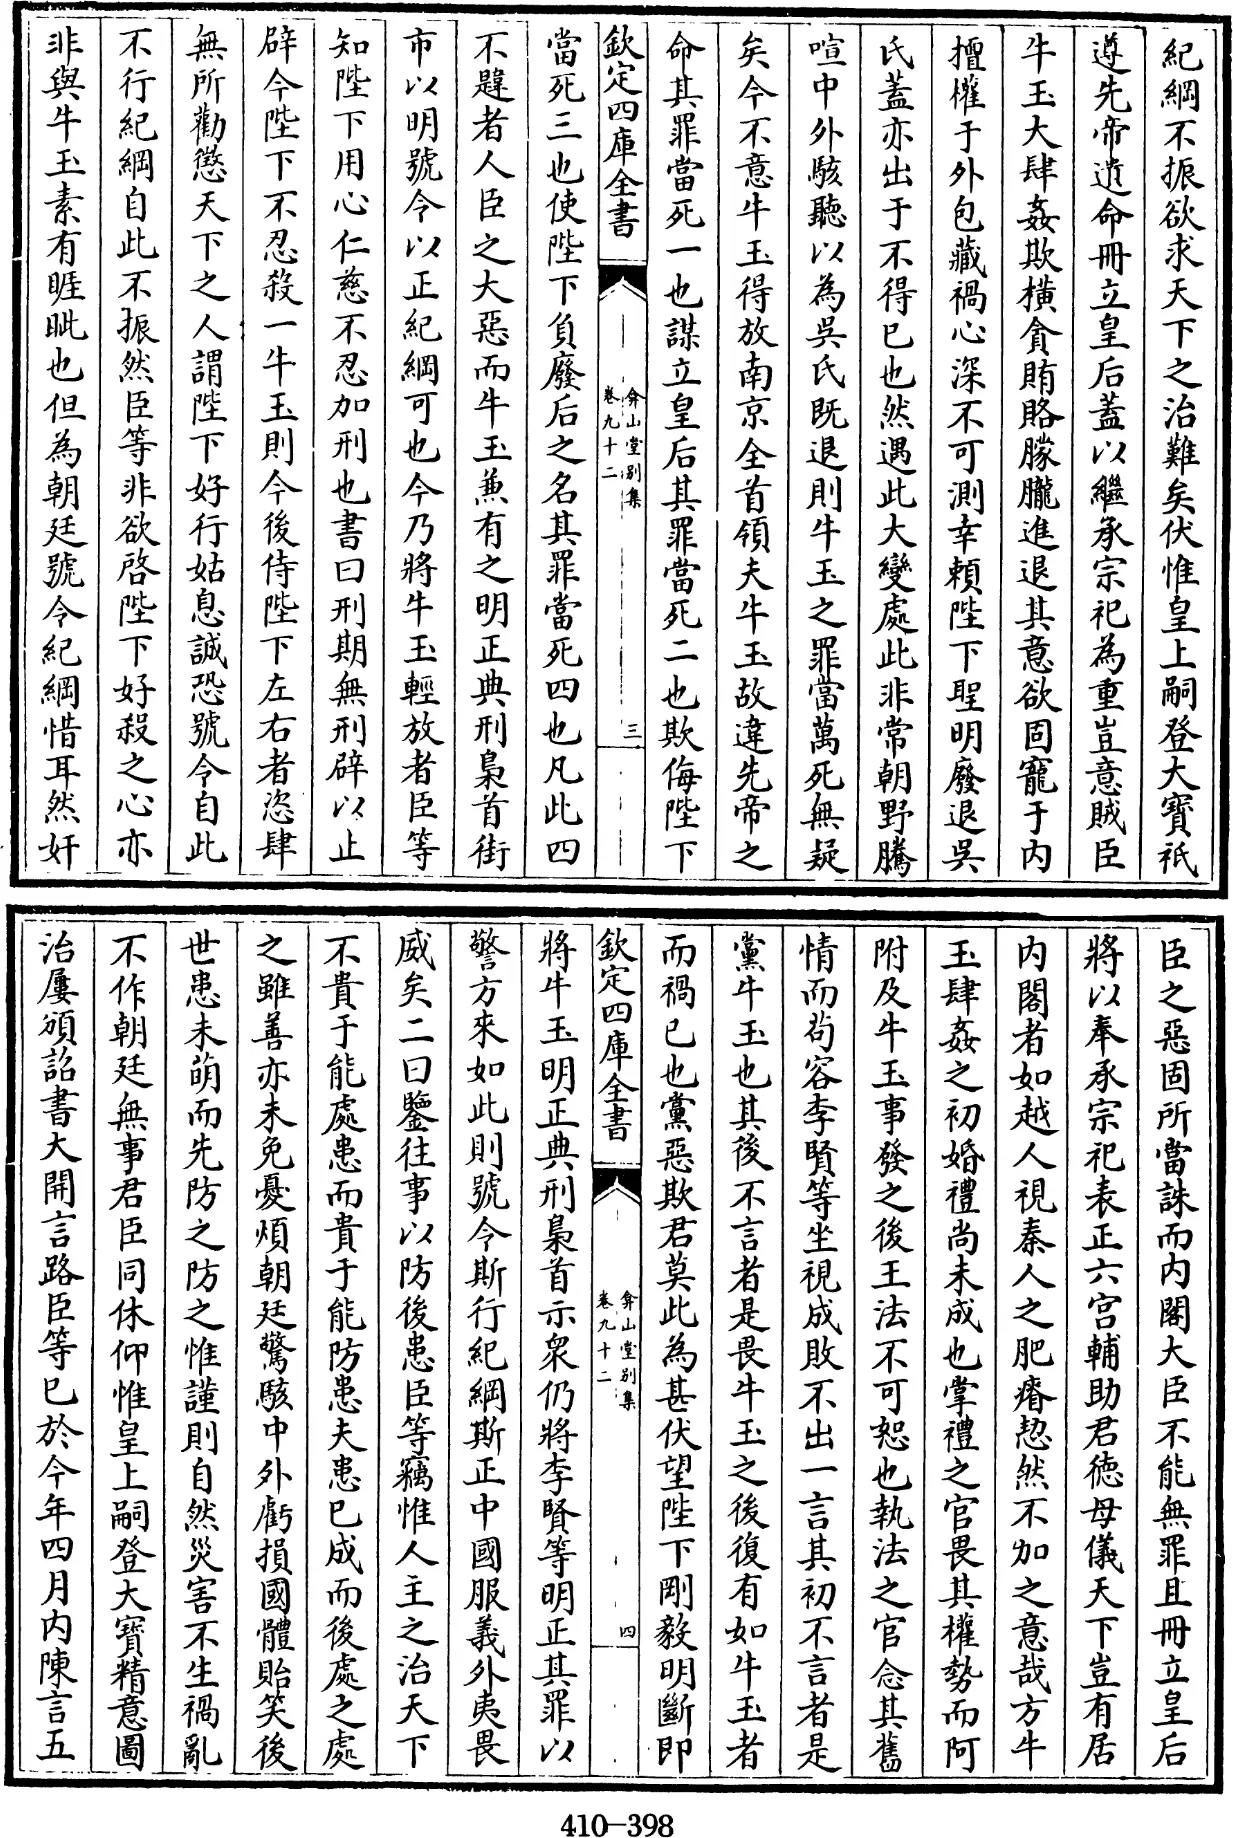 紀綱不振欲求天下之治難矣伏惟皇上嗣登大寳祇
遵先帝遺命冊立皇后蓋以繼承宗祀為重豈意賊臣
牛玉大肆姦欺橫貪賄賂朦朧進退其意欲固寵于内
擅權于外包藏禍心深不可測幸頼陛下聖明廢退吳
氏蓋亦出于不得已也然遇此大變處此非常朝野騰
喧中外駭聽以為吳氏既退則牛玉之罪當萬死無疑
矣今不意牛玉得放南京全首領夫牛玉故違先帝之
命其罪當死一也謀立皇后其罪當死二也欺侮陛下
欽定四庫全書
弇山堂别集
卷九十二
三
當死三也使陛下負廢后之名其罪當死四也凡此四
不韙者人臣之大惡而牛玉兼有之明正典刑梟首街
市以明號令以正紀綱可也今乃將牛玉輕放者臣等
知陛下用心仁慈不忍加刑也書曰刑期無刑辟以止
辟今陛下不忍殺一牛玉則今後侍陛下左右者恣肆
無所勸懲天下之人謂陛下好行姑息誠恐號令自此
不行紀綱自此不振然臣等非欲啓陛下好殺之心亦
非與牛玉素有睚眦也但為朝廷號令紀綱惜耳然奸
臣之惡固所當誅而内閣大臣不能無罪且冊立皇后
將以奉承宗祀表正六宫輔助君徳母儀天下豈有居
内閣者如越人視秦人之肥瘠恝然不加之意哉方牛
玉肆姦之初婚禮尚未成也掌禮之官畏其權勢而阿
附及牛玉事發之後王法不可恕也執法之官念其舊
情而茍容李賢等坐視成敗不出一言其初不言者是
黨牛玉也其後不言者是畏牛玉之後復有如牛玉者
而禍已也黨惡欺君莫此為甚伏望陛下剛毅明斷即
欽定四庫全書
弇山堂别集
卷九十二
四
將牛玉明正典刑梟首示衆仍將李賢等明正其罪以
警方來如此則號令斯行紀綱斯正中國服義外夷畏
威矣二曰鑒往事以防後患臣等竊惟人主之治天下
不貴于能處患而貴于能防患夫患已成而後處之處
之雖善亦未免憂煩朝廷驚駭中外虧損國體貽笑後
世患未萌而先防之防之惟謹則自然災害不生禍亂
不作朝廷無事君臣同休仰惟皇上嗣登大寳精意圖
治屢頒詔書大開言路臣等已於今年四月内陳言五
410-398